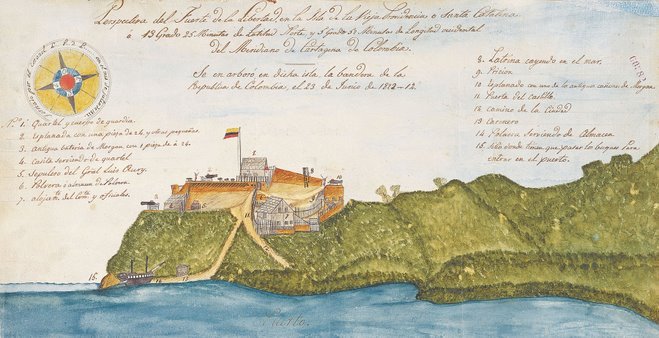 Perspectiva del Fuerte de la Libertad, en la Isla de la Vieja Providencia o Santa Catalina
á 13 Grado 25 Minutos de Latitud Norte, y 5 Grado 5 Minutos de Longitud occidental
del Meridiano de Cartagena de Colombia.
Se en arboro en dicha isla la bandera de la
Republica de Colombia, el 23 de Junio de 1822-12.
1. Quartel y cuerpo de guardia.
2. Esplanada con una pieza de 24 y otras pequeñas.
3. antigua bateria de Morgan con 1 pieza de á 24.
4. Casita serviendo de quartel
5. Sepulcro del Gral Luis Aury.
6. Polvera
7. y oficiales.
8. Latrina cayendo en el mar.
9. Pricion
10. Esplanada con uno de lo antiguo cañones de Morgan
11. Puerta del Castillo.
12. camino de la Ciudad
13.
14. Polacra serviendo de Almacen
15. sitio donde tienen que pasar los buques para
entrar en el puerto.
15.
Puerto.